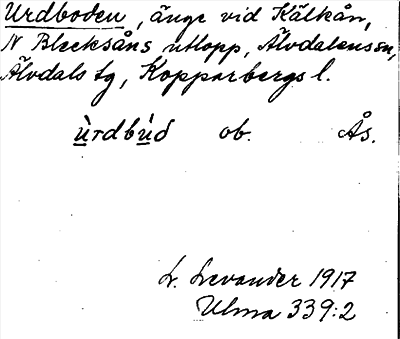 Urdboden, änge vid Kälkån,
N Blecksåns utlopp, Älvdalens sn,
Älvdals tg, Kopparbergs l.
ùrdbúð ob. Ås.
L. Levander 1917
Ulma 339:2